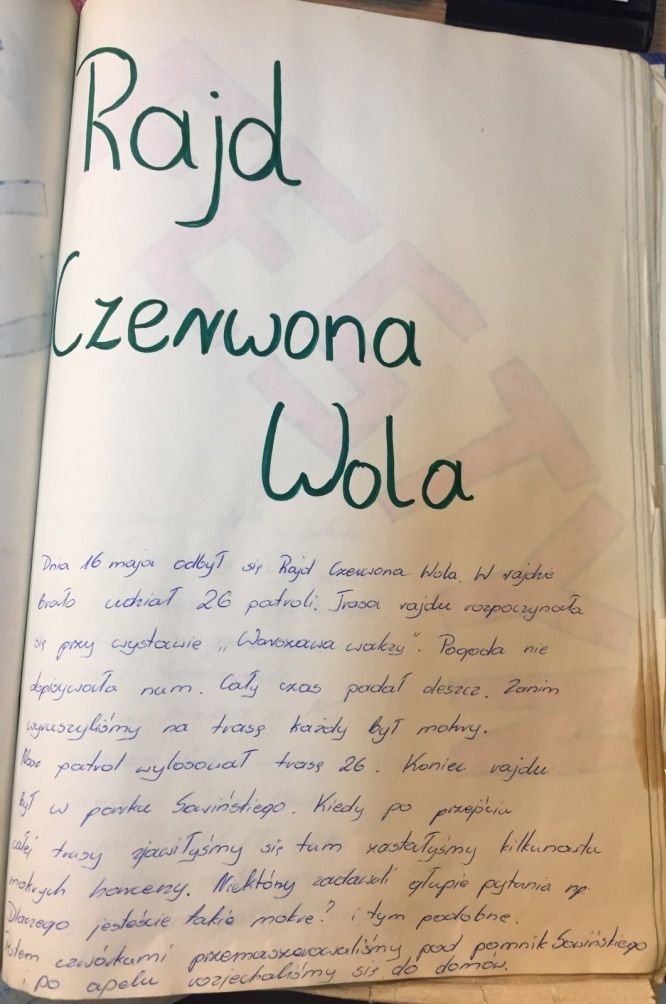 Rajd
Czerwona
Wola
Dnia 16 maja odbył się Rajd Czerwona Wola. W rajdzie
brało udział 26 patroli. Trasa rajdu rozpoczynała
się przy wystawie „Warszawa walczy". Pogoda nie
dopisywała nam. Cały czas padał deszcz. Zanim
wyruszyliśmy na trasę każdy był mokry.
Nasz patrol wylosował trasę 26. Koniec rajdu
był w parku Sowińskiego. Kiedy po przejściu
całej trasy zjawiłyśmy się tam zastałyśmy kilkunastu
mokrych harcerzy. Niektórzy zadawali głupie pytania np.
Dlaczego jesteście takie mokre? i tym podobne.
Potem czwórkami przemaszerowaliśmy pod pomnik Sowińskiego
i po apelu rozjechaliśmy się do domów.